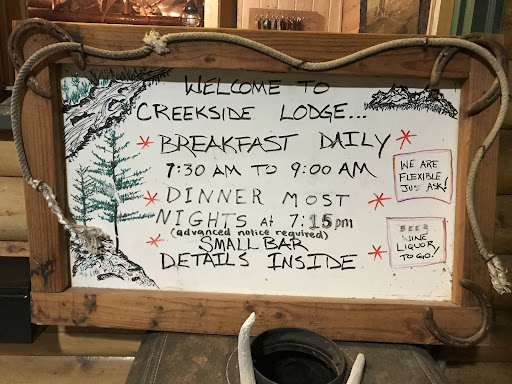 WELCOME TO
CREEKSIDE LODGE...
* BREAKFAST DAILY *
7:30 AM TO 9:00 AM
* DINNER MOST
NIGHTS At 7:15pm
(advanced notice required)
* SMALL BAR *
DETAILS INSIDE
WE ARE
FLEXIBLE
JUST ASK!
BEER
WINE
LIQUORY
TO GO!